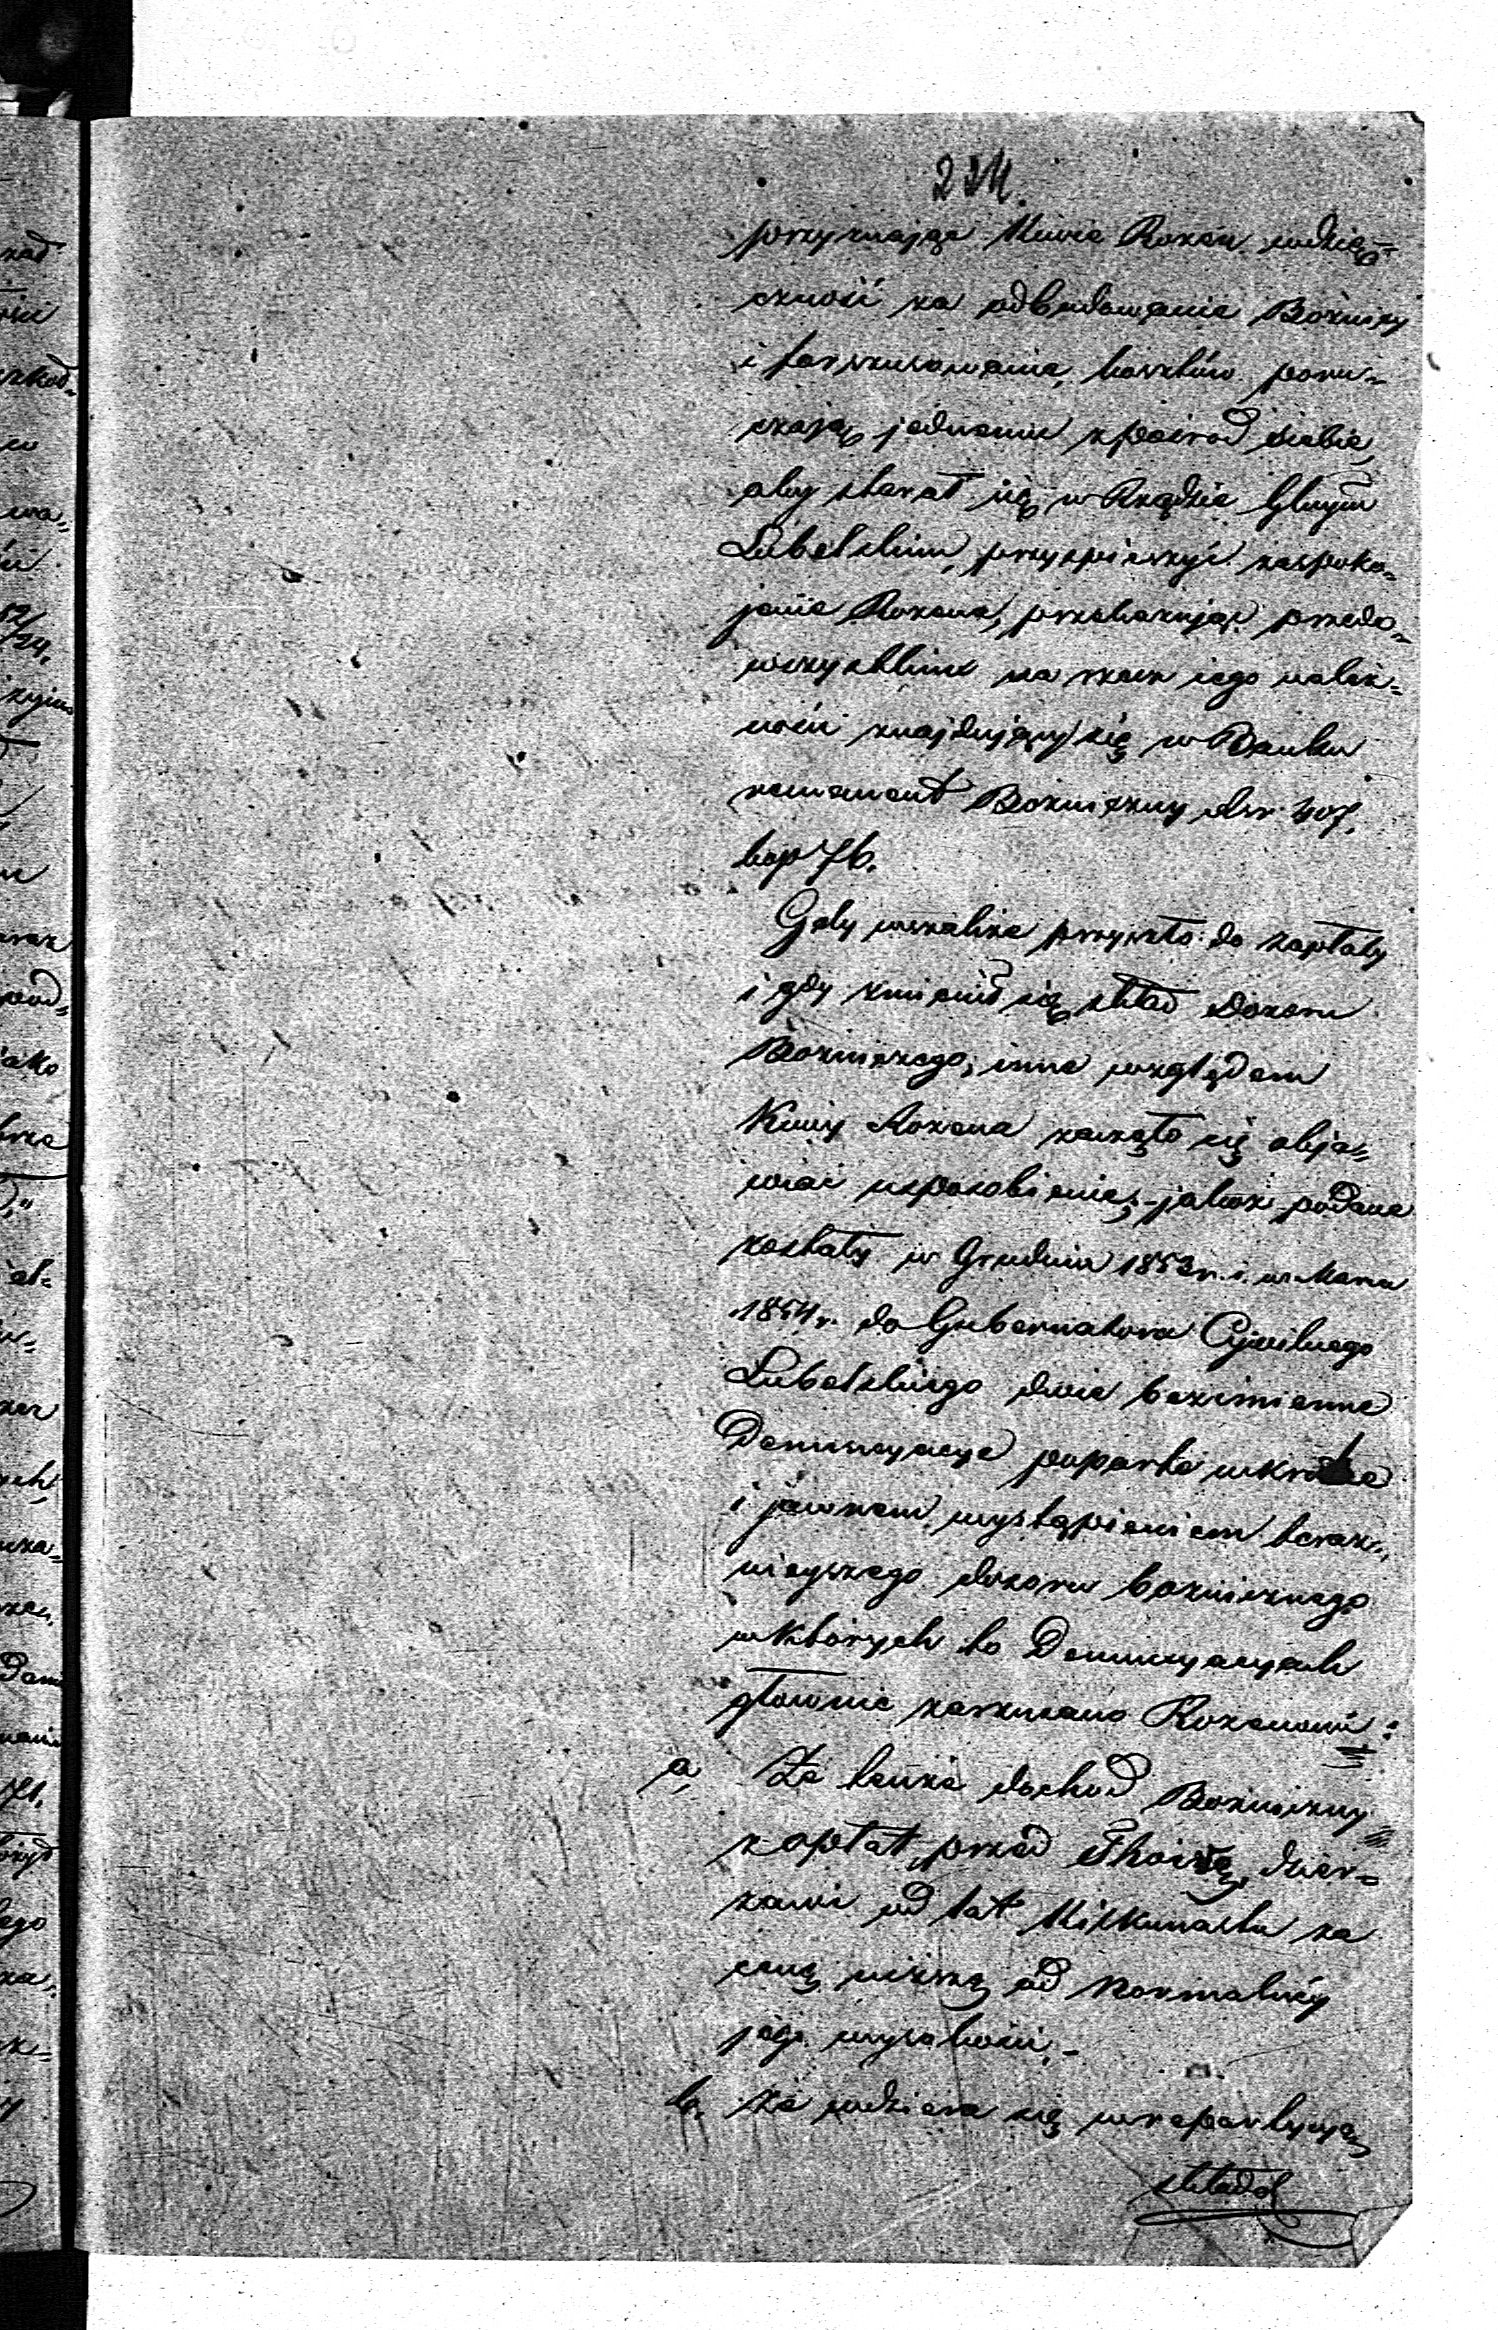 224.
przyznając Kiwie Rozen wdzię-
czność za odbudowanie Bóżnicy
i forszusowanie kosztów poru-
czają jednemu zpośrod siebie,
aby starał się w Rządzie Głnym
Lubelskim, przyspieszyć zaspoko-
jenie Rozena, przekazując przede-
wszystkim na rzecz iego należ-
ności znajdujący się w Banku
remanent Bożniczny rsr. 407.
kop 76.
Gdy wszakże przyszło do zapłaty
i gdy zmienił się skład Dozoru
Bóżniczego, inne względem
Kiwy Rozena zaczęło się obja-
wiać usposobienie, jakoż podane
zostały w Grudniu 1853 r. i w Marcu
1854 r. do Gubernatora Cywilnego
Lubelskiego dwie bezimienne
Denuncyacye poparte wkrótce
i jawnem wystąpieniem teraz-
nieyszego dozoru bożnicznego
w których to Denuncyacyach
głownie zarzucano Rozenowi:
a, Że tenże dochod Bożniczny
z opłat przed Thorą, dzier-
zawi od lat Kilkunastu za
cenę niższą od normalnéy
jego wysokości.-
b. że wdziera się w repartycyą
składek